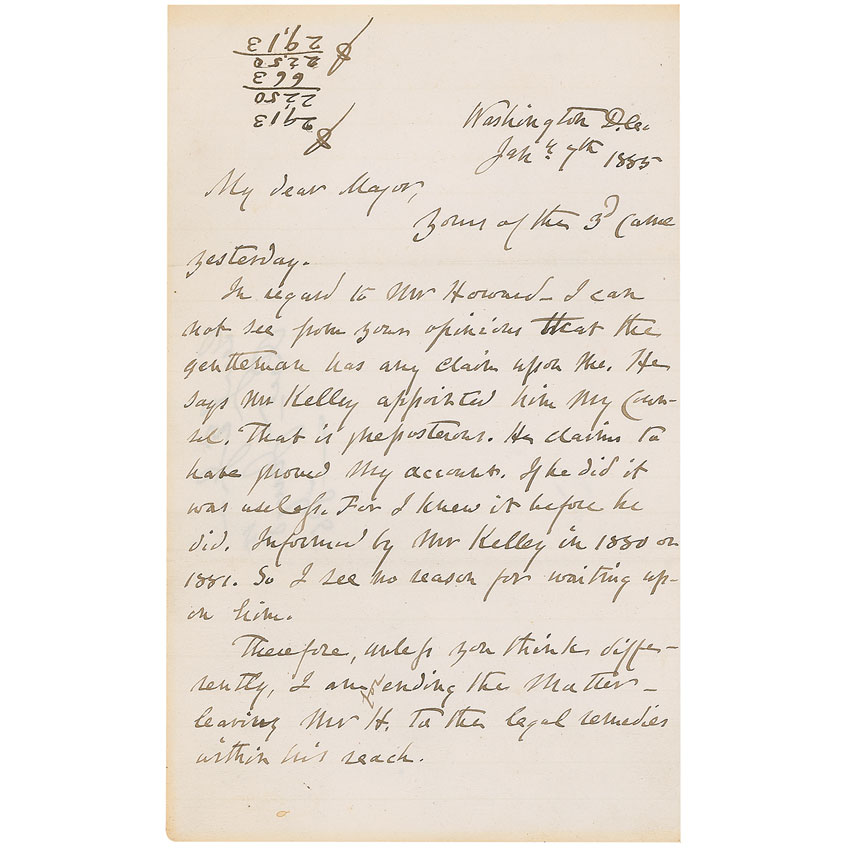 2913
22,50
663
22,50
29,13
Washington D.C.
Jany. 7th 1885
My dear Major,
Yours of the 3d came
yesterday.
In regard to Mr Howard – I can
not see from your opinions that the
gentleman has any claim upon me. He
says Mr Kelley appointed him my coun-
sel. That is preposterous. He claims to
have proved my accounts. If he did it
was useless. For I knew it before he
did. Informed by Mr Kelley in 1880 or
1881. So I see no reason for waiting up-
on him.
Therefore, unless you think diffe-
rently, I am for ending the matter –
leaving Mr H. to the legal remedies
within his reach.